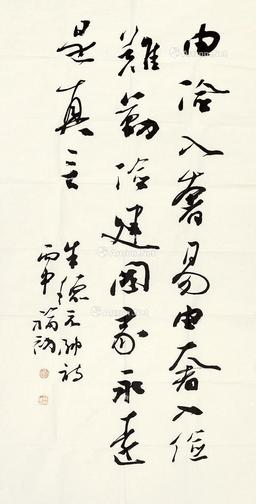 由儉入奢易由奢入儉
難勤儉建國家永遠
是真言
朱德元帥詩
丙申